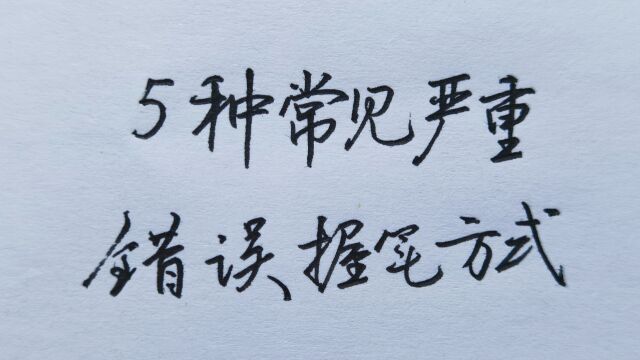 5种常见严重
错误握笔方式